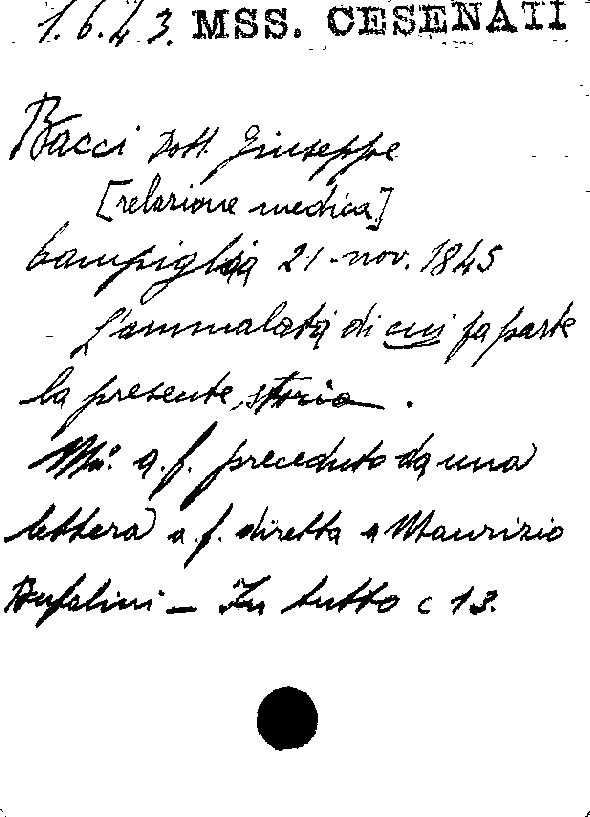 1.6.43. MSS. CESENATI
Bacci Dott. Giuseppe
[relazione medica]
Campiglia 21-nov. 1845
L'ammalata di cui fa parte
la presente storia.
Ms. a.f. preceduto da una
lettera a.f. diretta a Maurizio
Bufalini - In tutto c 13.